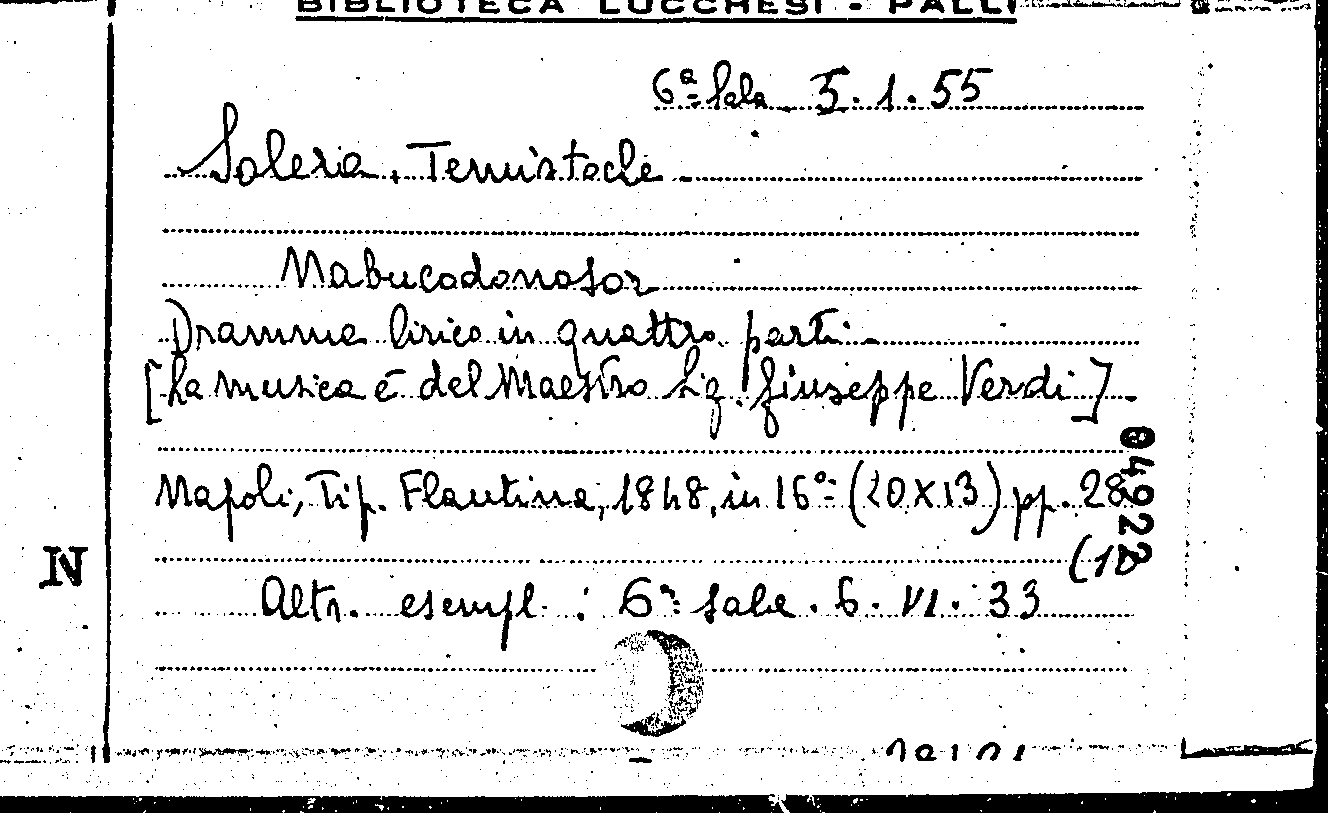 BIBLIOTECA LUCCHESI - PALLI
6ª Sala 5.1.55
Solera, Temistocle
Nabucodonosor
Dramma lirico in quattro parti
[La musica è del Maestro Sig. Giuseppe Verdi]
Napoli, Tip. Flautina, 1848, in 16º (20X13) pp. 28
(1
04922
N
Altr. esempl. : 6ª Sala. 6. VI. 33